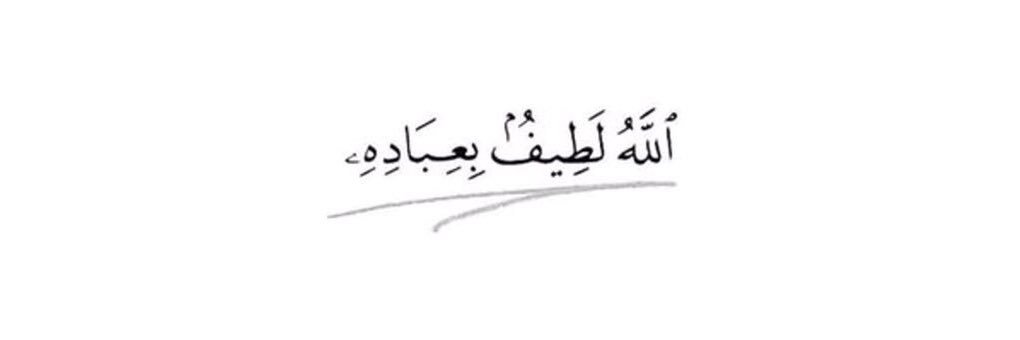 ٱللَّهُ لَطِيفُۢ بِعِبَادِهِۦ